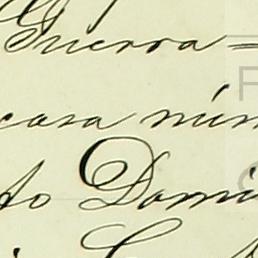 Guerra =
casa núm
to Domi